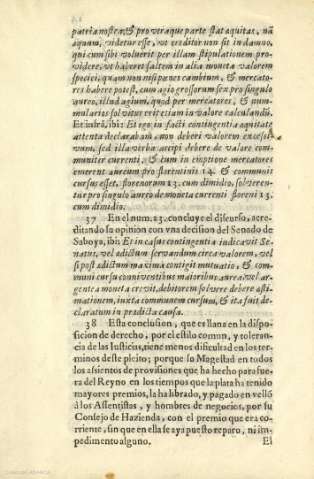 patria nostra, & pro vera que parte stat aequitas, nã
aquum, videtur esse, vt creditor non sit in damno,
qui cum sibi voluerit per illam stipulationem pro-
videre, vt haberet saltem in alia moneta valorem
speciei, quam non nisi per cambium, & mercato-
res habere potest, cum agio grossorum seu pro singulo
aureo, illud agium, quod per mercatores, & num-
mularios solvitur etiã etiam in valore calculandũ.
Et infrà, ibi: Et ego in facti contingentia aequitate
attenta declarabam, non deberi valorem excessi-
vum, sed illa verba accipi debere de valore com-
muniter currenti, & tum in emptione mercatores
emerent aureum pro florentinis 14. & communis
cursus esset, florenorum 13. cum dimidio, solveren-
tur pro singulo aureo de moneta currenti floreni 13.
cum dimidio.
37 En el num. 23. concluye el discurso, acre-
ditando su opinion con vna decision del Senado de
Saboya, ibi: Et in casus contingentia indicavit Se-
natus, vel adictum servandum circa valorem, vel
si post adictum maxima contigit mutatio, & com-
muni cursu conniventibus maioribus aurea, vel ar-
gentea moneta crevit, debitorem solvere debere aesti-
mationem, iuxta communem cursum, & ita fuit de-
claratum in praedicta causa.
38 Esta conclusion, que es llana en la dispo-
sicion de derecho, por el estilo comun, y toleran-
cia de las Iusticias, tiene menos dificultad en los ter-
minos deste pleito; porque su Magestad en todos
los assientos de provisiones que ha hecho para fue-
ra del Reyno en los tiempos que la plata ha tenido
mayores premios, la ha librado, y pagado en vellõ
à los Assentistas, y hombres de negocios, por su
Consejo de Hazienda, con el premio que era co-
rriente, sin que en ella se aya puesto reparo, ni im-
pedimento alguno.
El